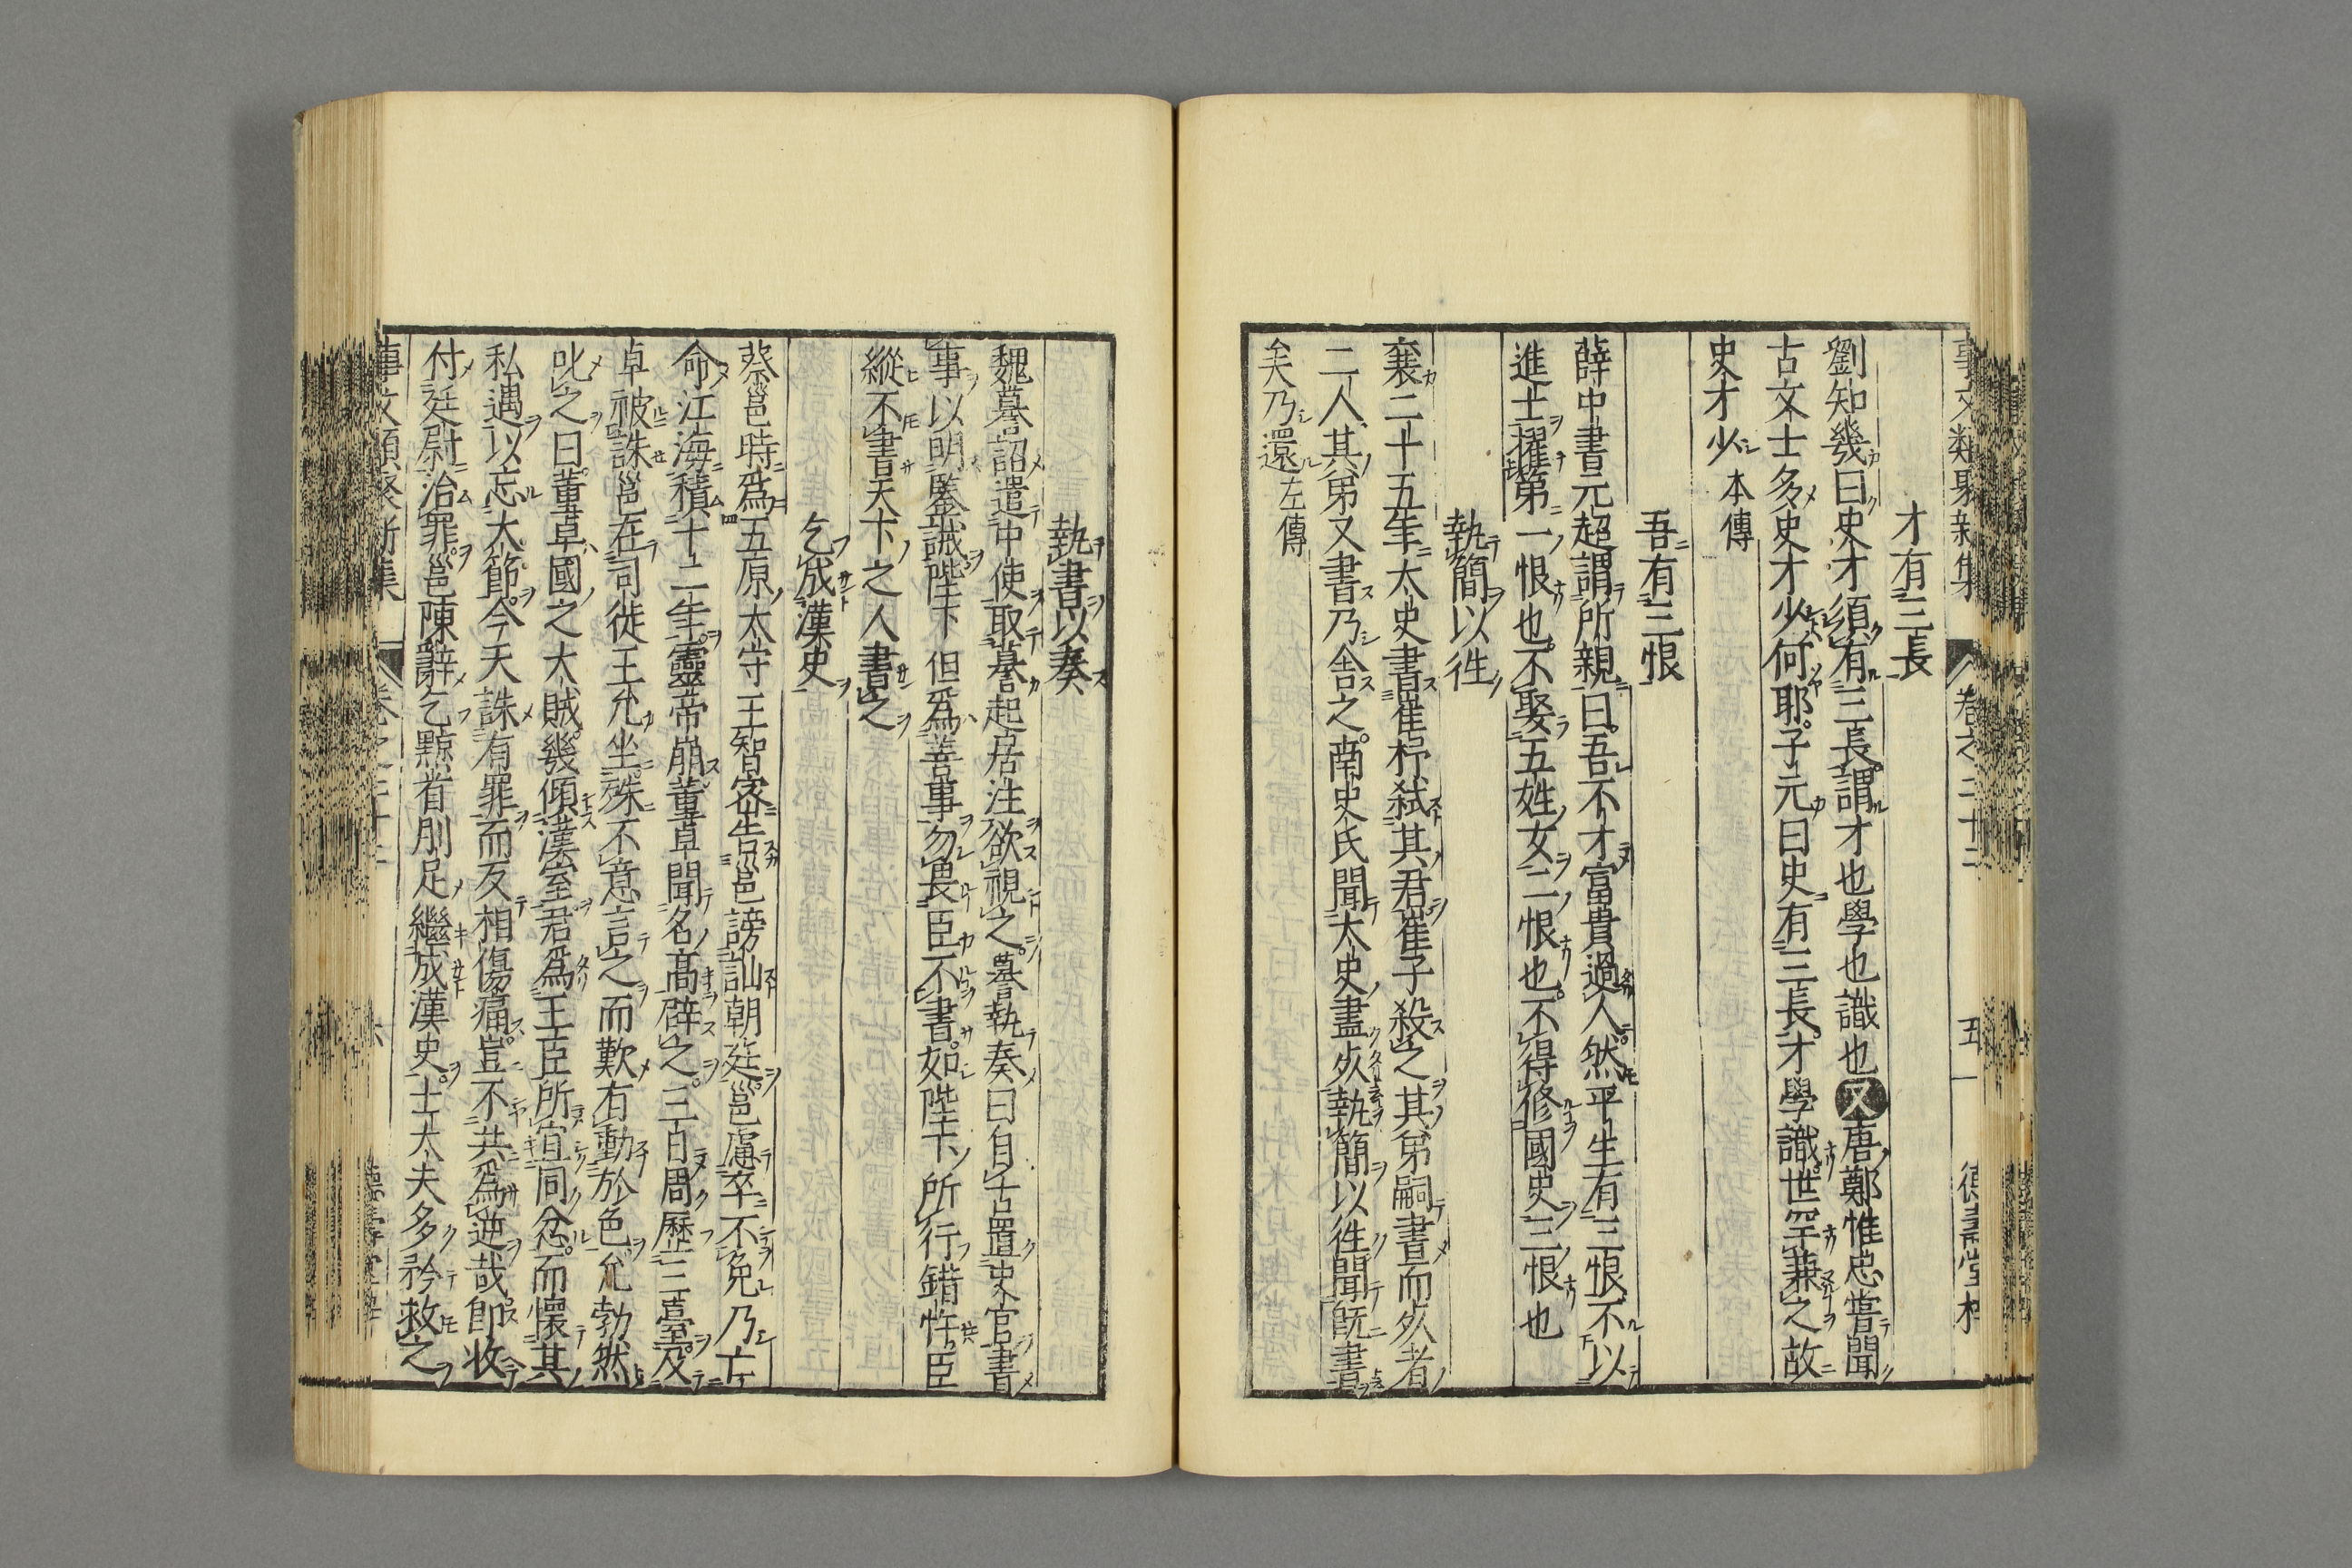 事文類聚新集 卷之二十二 五 德壽堂梓
才有三長
劉知幾曰史才須有三長謂才也學也識也又唐鄭惟忠嘗聞
古文士多史才少何耶子元曰史有三長才學識世罕兼之故
史才少 本傳
吾有三恨
薛中書元超謂所親曰吾不才富貴過人然平生有三恨不以
進士擢第一恨也不娶五姓女二恨也不得修國史三恨也
執簡以徃
襄二十五年太史書崔杼弑其君崔子殺之其弟嗣書而死者
二人其弟又書乃舍之南史氏聞太史盡死執簡以徃聞旣書
矣乃還 左傳
執書以奏
魏謩詔遣中使取謩起居注欲視之謩執奏曰自古置史官書
事以明鑒誡陛下但爲善事勿畏臣不書如陛下所行錯忤臣
縱不書天下之人書之
乞成漢史
蔡邕時爲五原太守王智密告邕謗訕朝廷邕慮卒不免乃亡
命江海積十二年靈帝崩董卓聞名高辟之三日周歷三臺及
卓被誅邕在司徒王允坐殊不意言之而歎有動於色允勃然
叱之曰董卓國之大賊幾傾漢室君爲王臣所宜同忿而懷其
私遇以忘大節今天誅有罪而反相傷痛豈不共爲逆哉卽收
付廷尉治罪邕陳辭乞黥首刖足繼成漢史士大夫多矜救之
事文類聚新集 卷之二十二 六